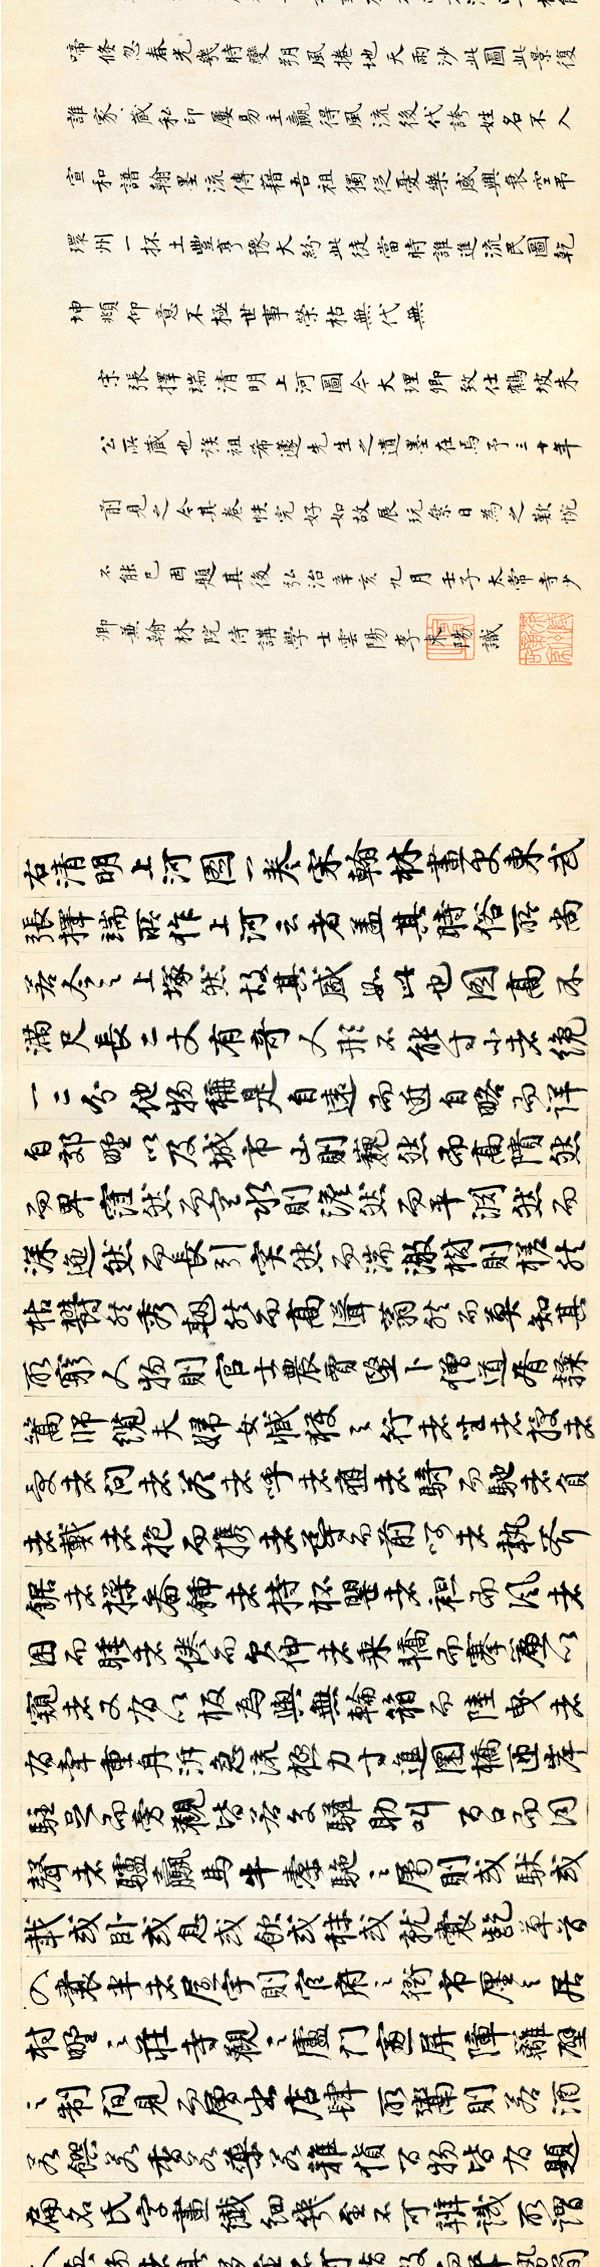 啼倏忽春光幾時變朔風捲地天雨沙此圖此景復
誰家家藏私印屢易主贏得風流後代誇姓名不入
宣和譜翰墨流傳藉吾祖獨從憂樂感興衰空弔
環州一抔土豐亨豫大紛此徒當時誰進流民圖乾
坤頫仰意不極世事榮枯無代無
宋張擇端清明上河圖今大理卿致仕鶴坡朱
公所藏也族祖希蘧先生之遺墨在焉予三十年
前見之今其卷帙完好如故展玩累日為之歎惋
不能已因題其後弘治辛亥九月壬子太常寺少
卿兼翰林院侍講學士雲陽李東陽識
右清明上河圖一卷宋翰林畫史東武
張擇端所作上河云者蓋其時俗所尚
若今之上塚然故其盛如此也圖高不
滿尺長二丈有奇人形不能寸小者纔
一二分他物稱是自遠而近自略而詳
自郊野以及城市山則巍然而高隤然
而卑窪然而空水則澹然而平淵然而
深迤然而長引突然而湍激樹則槎然
枯鬱然秀翹然而高聳蓊然而莫知其
所窮人物則官士農賈醫卜僧道胥隸
篙師纜夫婦女臧獲之行者坐者授者
受者問者答者呼者應者騎而馳者負
者戴者抱而攜者導而前呵者執斧
鋸者操畚鍤者持杯罌者袒而風者
困而睡者倦而欠伸者乘轎而搴簾以
窺者又有以板為輿無輪箱而陸曳者
有牽重舟泝急流極力寸進圜橋匝岸
駐足而旁觀皆若交驩助叫百口而同
聲者驢騾馬牛橐駝之屬則或馱或
載或卧或息或飲或秣或就囊齕草首
入囊半者屋宇則官府之衙市廛之居
村野之莊寺觀之廬門窗屏障籬壁
之制間見而層出店肆所鬻則若酒
若饌若香若藥若雜貨百物皆有題
扁名氏字畫纖細幾至不可辨識所謂